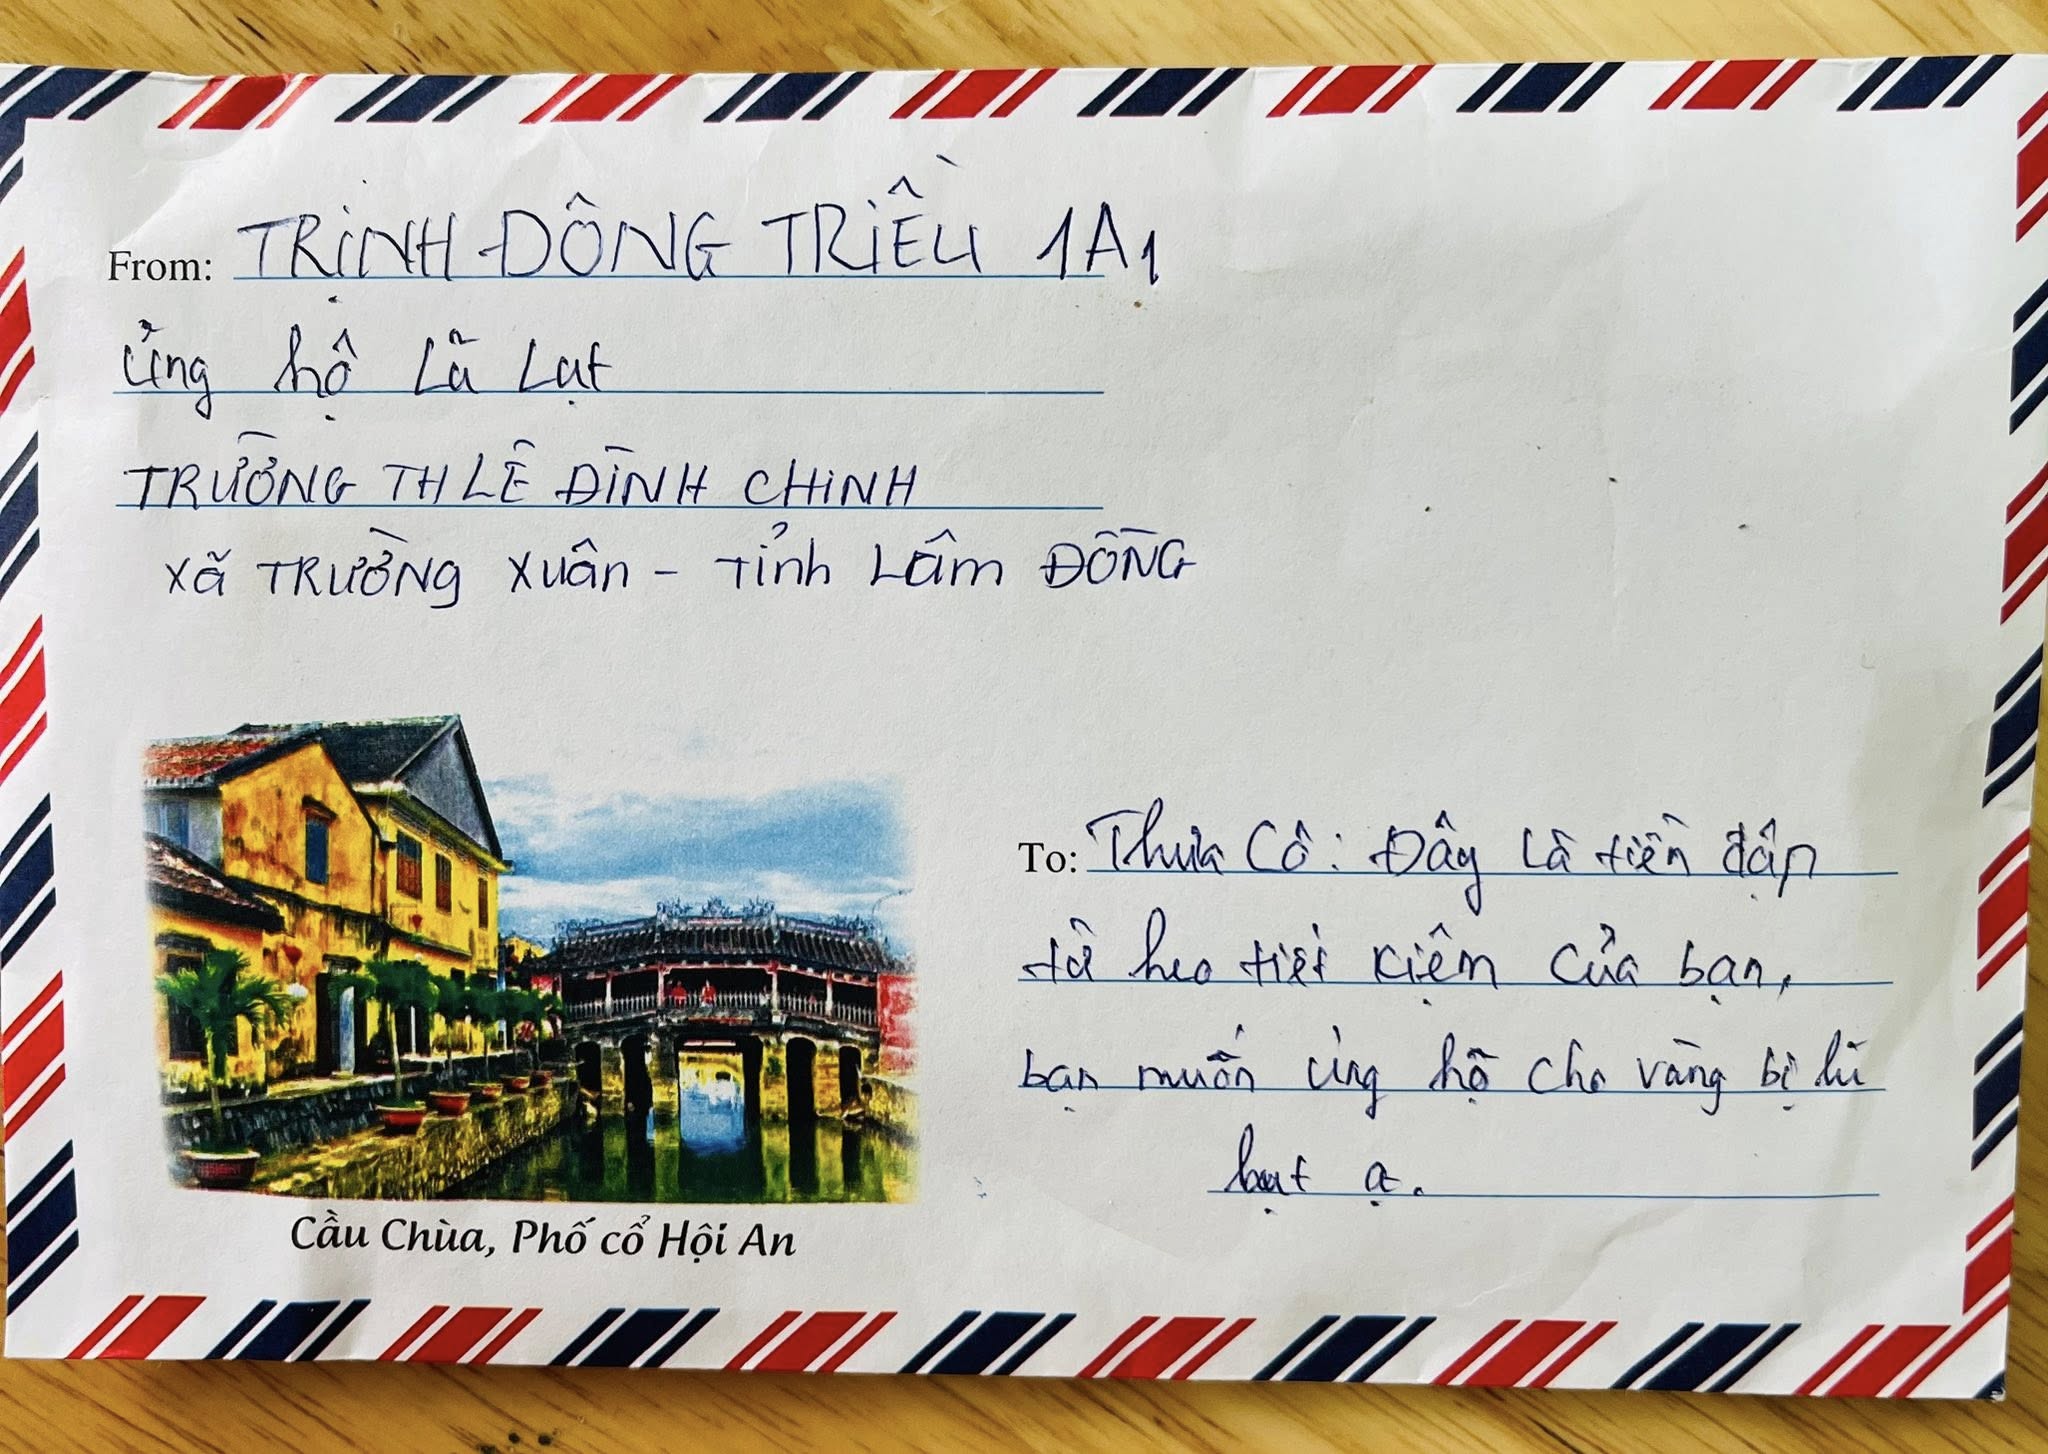 From: TRỊNH ĐÔNG TRIỀU 1A1
Ủng hộ Lũ Lụt
TRƯỜNG TH LÊ ĐÌNH CHINH
Xã TRƯỜNG Xuân - Tỉnh Lâm ĐỒNG
To: Thưa Cô: Đây là tiền đập
từ heo tiết kiệm của bạn,
bạn muốn ủng hộ cho vùng bị lũ
lụt ạ.
Cầu Chùa, Phố cổ Hội An